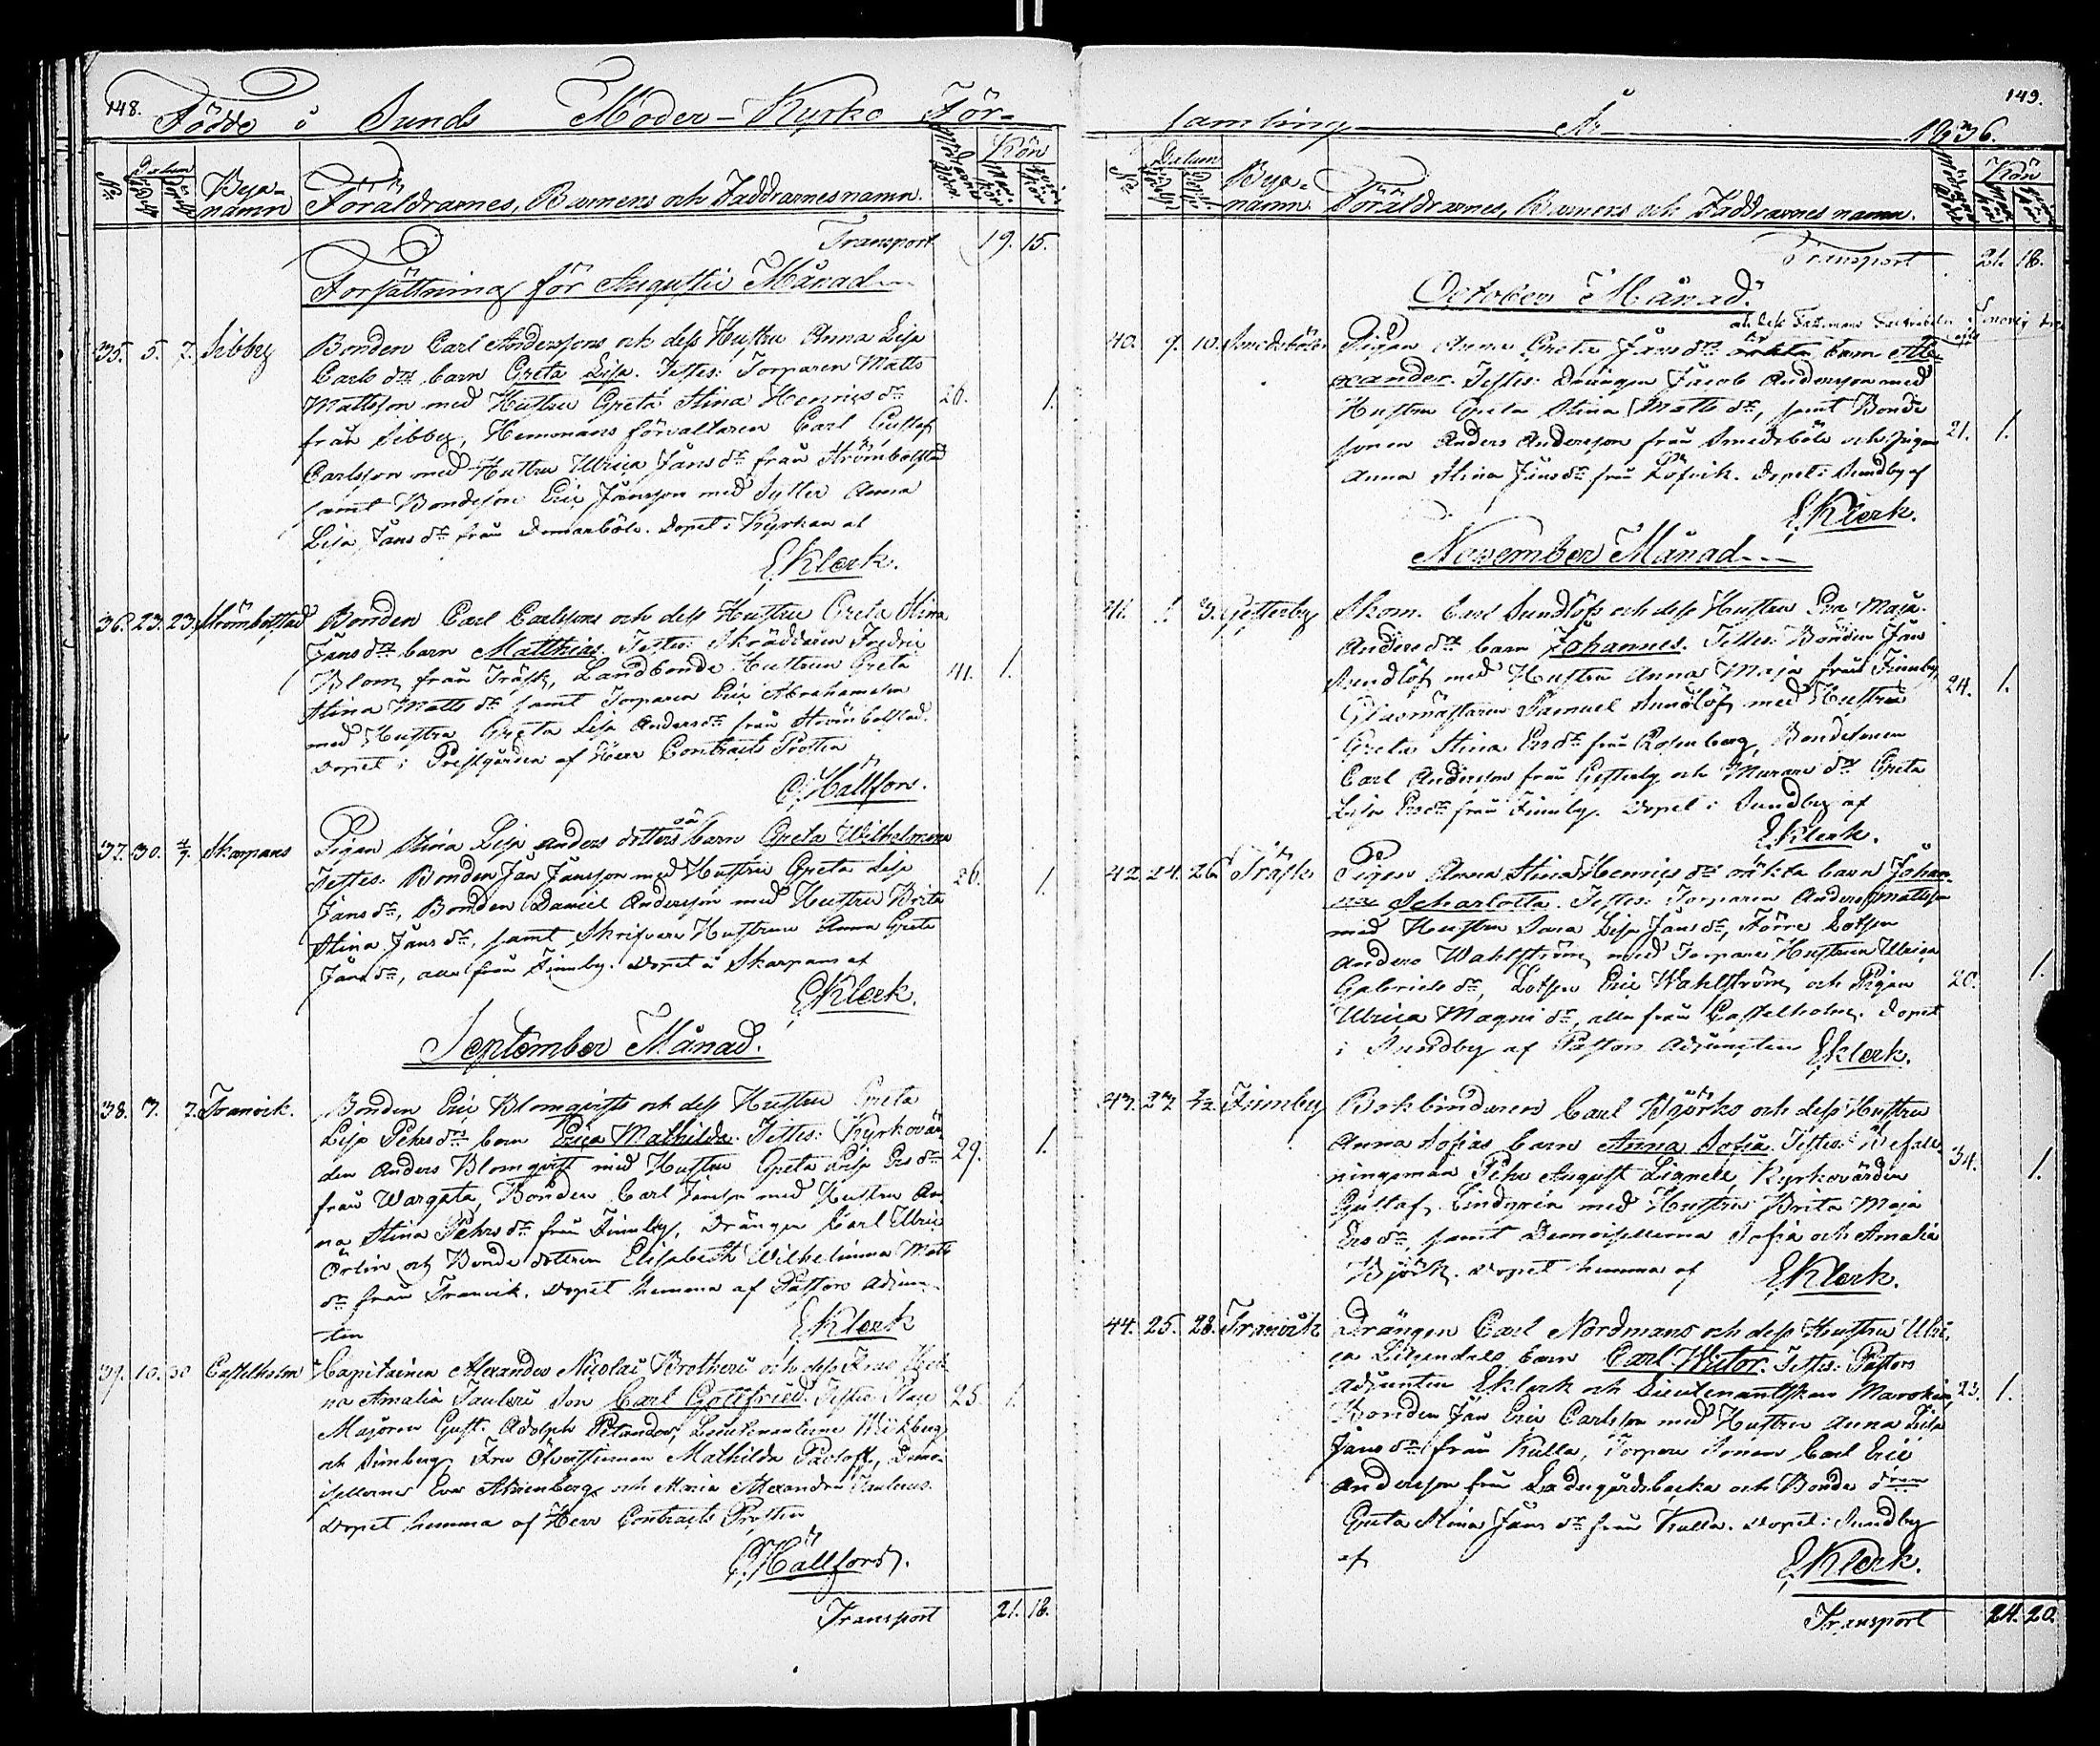 148.
Födde i Sunds Moder-Kyrko För-
No
Datum
Bya-
namn
Föräldrarnes, Barnens och Faddrarnes namn.
Kön
Transport 19. 15.
Forsättning för Augustii Månad
35. 5. 7. Sibby
Bonden Carl Anderssons och dess Hustru Anna Lisa
Carls dr barn Greta Lisa. Testes: Torparen Matts
Mattsson med Hustru Greta Stina Henrics dr 26. 1.
från Sibby, Hemmans förvaltaren Carl Gustaf
Carlsson med Hustru Ulrica Jans dr från Strömbolstad
samt Bondeson Eric Jansson med Syster Anna
Lisa Jans dr från Domarböle. Döpet i Kyrkan af
Eklerk.
36. 23. 23. Strömbolstad
Bonden Carl Carlssons och dess Hustru Greta Stina
Jans drs barn Matthias. Testes: Skräddaren Fredric
Blom från Träsk, Landbonde Hustrun Greta 41. 1.
Stina Matts dr samt Torparen Eric Abrahamsson
med Hustru Greta Lisa Anders dr från Strömbolstad.
Döpet i Prestgården af Herr Contracts Prosten
Hällfors.
37. 30. 4/9. Skarpans
Pigan Stina Lisa Anders dotters oä barn Greta Wilhelmina
Testes: Bonden Jan Jansson med Hustru Greta Lisa 26. 1.
Jans dr, Bonden Daniel Andersson med Hustru Brita
Stina Jans dr, samt Skrifvare Hustrun Anna Greta
Jans dr, alla från Finnby. Döpet i Skarpans af
Eklerk.
September Månad.
38. 3. 7. Tranvik.
Bonden Eric Blomqvists och dess Hustru Greta
Lisa Pehrs drs barn Erica Mathilda. Testes: Kyrkovär-
den Anders Blomqvist med Hustru Greta Lisa Ers dr 29. 1.
från Wargata, Bonden Carl Jansson med Hustru An-
na Stina Pehrs dr från Finnby, Drängen Carl Ulric
Örlin och Bonde dottren Elisabeth Wilhelmina Matts
dr från Tranvik. Döpet hemma af Pastors Adjunc-
ten Eklerk
39. 10. 30 Castelholm
Capitainen Alexander Nicolai Brotheri och dess Frus Hele-
na Amalia Tauleri Son Carl Gottfried. Testes: Plats 25. 1.
Majoren Gust. Adolph Petander, Lieutenanterne Wikberg
och Armberg, Fru Öfverstinnan Mathilda Pavloff, Demoi-
sellerne Eva Ahrenberg och Maria Alexandra Tauleus.
Döpet hemma af Herr Contracts Prosten
Hällfors.
Transport 21. 18.
149.
samling År 1836.
No
Datum
Bya-
namn.
Föräldrarnes, Barnens och Faddrarnes namn.
Kön
Transport 21. 18.
October Månad.
40. 9. 10. Smedsböle
Pigan Anna Greta Jans drs oäkta barn Ale-
xander. Testes: Drängen Jacob Andersson med
Hustru Greta Stina Matts dr, samt Bonde
sonen Anders Andersson från Smedsböle och Pigan 21. 1.
Anna Stina Jans dr från Löfvik. Döpet i Sundby af
Eklerk.
November Månad
41. 1. 3. Gesterby
Skom. Carl Sundlöfs och dess Hustru Eva Maja
Anders drs barn Johannes. Testes: Bonden Jan
Sundlöf med Hustru Anna Maja från Finnby,
Glasmästaren Samuel Sundlöf med Hustru 24. 1.
Greta Stina Ers dr från Rosenberg, Bondesonen
Carl Andersson från Gesterby och Murare dr Greta
Lisa Ers dr från Finnby. Döpet i Sundby af
Eklerk.
42. 24. 26. Träsk
Pigan Anna Stina Henrics drs oäkta barn Johan-
na Scharlotta. Testes: Torparen Anders Mattsson
med Hustru Sara Lisa Jans dr, Förre Lotsen
Anders Wahlström med Torpare Hustrun Ulrica
Gabriels dr, Lotsen Eric Wahlström och Pigan 20. 1.
Ulrica Magni dr, alla från Castelholm. Döpet
i Sundby af Pastors Adjuncten Eklerk.
43. 27. Finnby
Bokbindaren Carl Björks och dess Hustru
Anna Sofias barn Anna Sofia. Testes: Befall-
ningsman Pehr August Lignell, Kyrkovärden 34. 1.
Gustaf Lindgrén med Hustru Brita Maja
Ers dr, samt Demoisellerna Sofia och Amalia
Björk. Döpet hemma af Eklerk.
44. 25. 28. Tranvik
Drängen Carl Nordmans och dess Hustru Ulri-
ca Liljendals barn Carl Wictor. Testes: Pastors
Adjuncten Eklerk och Lieutenantskan Maroskin, 23. 1.
Bonden Jan Eric Carlsson med Hustru Anna Lisa
Jans dr från Kulla, Torpare Sonen Carl Eric
Andersson från Ladugårdsbacka och Bonde dren
Greta Stina Jans dr från Kulla. Döpet i Sundby
af Eklerk.
Transport 24. 20.